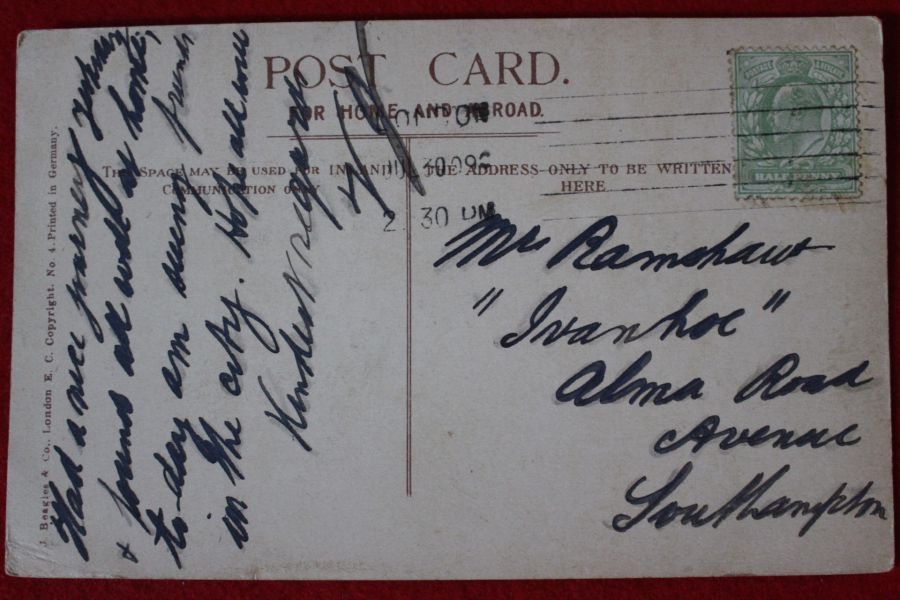 POST CARD.
FOR HOME AND ABROAD.
THIS SPACE MAY BE USED FOR INLAND
COMMUNICATION ONLY
THE ADDRESS ONLY TO BE WRITTEN
HERE
J. Beagles & Co., London E. C. Copyright. No. 4. Printed in Germany.
POSTAGE
HALF PENNY
30
2 30 PM
Had a nice journey yesterday
& found all well at home,
to-day am seeing friends
in the city. Hope all well
Kindest regards
Mrs Ramshaw
"Ivanhoe"
Alma Road
Avenue
Southampton